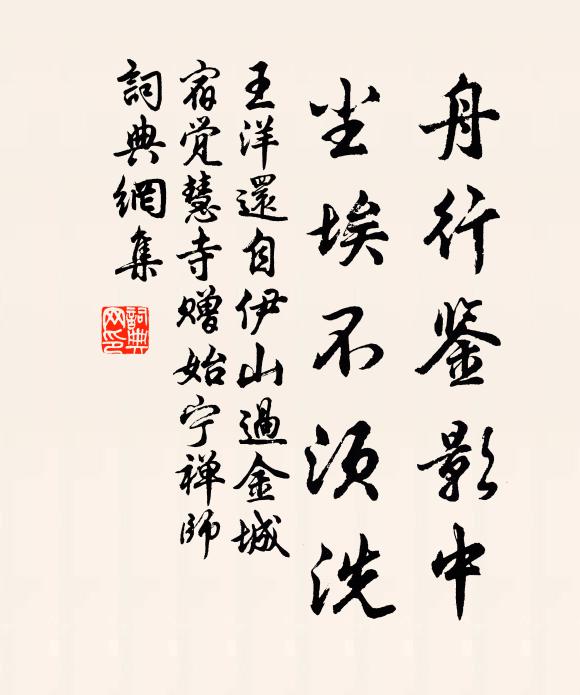 舟行鉴影中
尘埃不须洗
王洋還自伊山過金城
宿觉慧寺赠始宁禅師
詞典網集
詞典网印